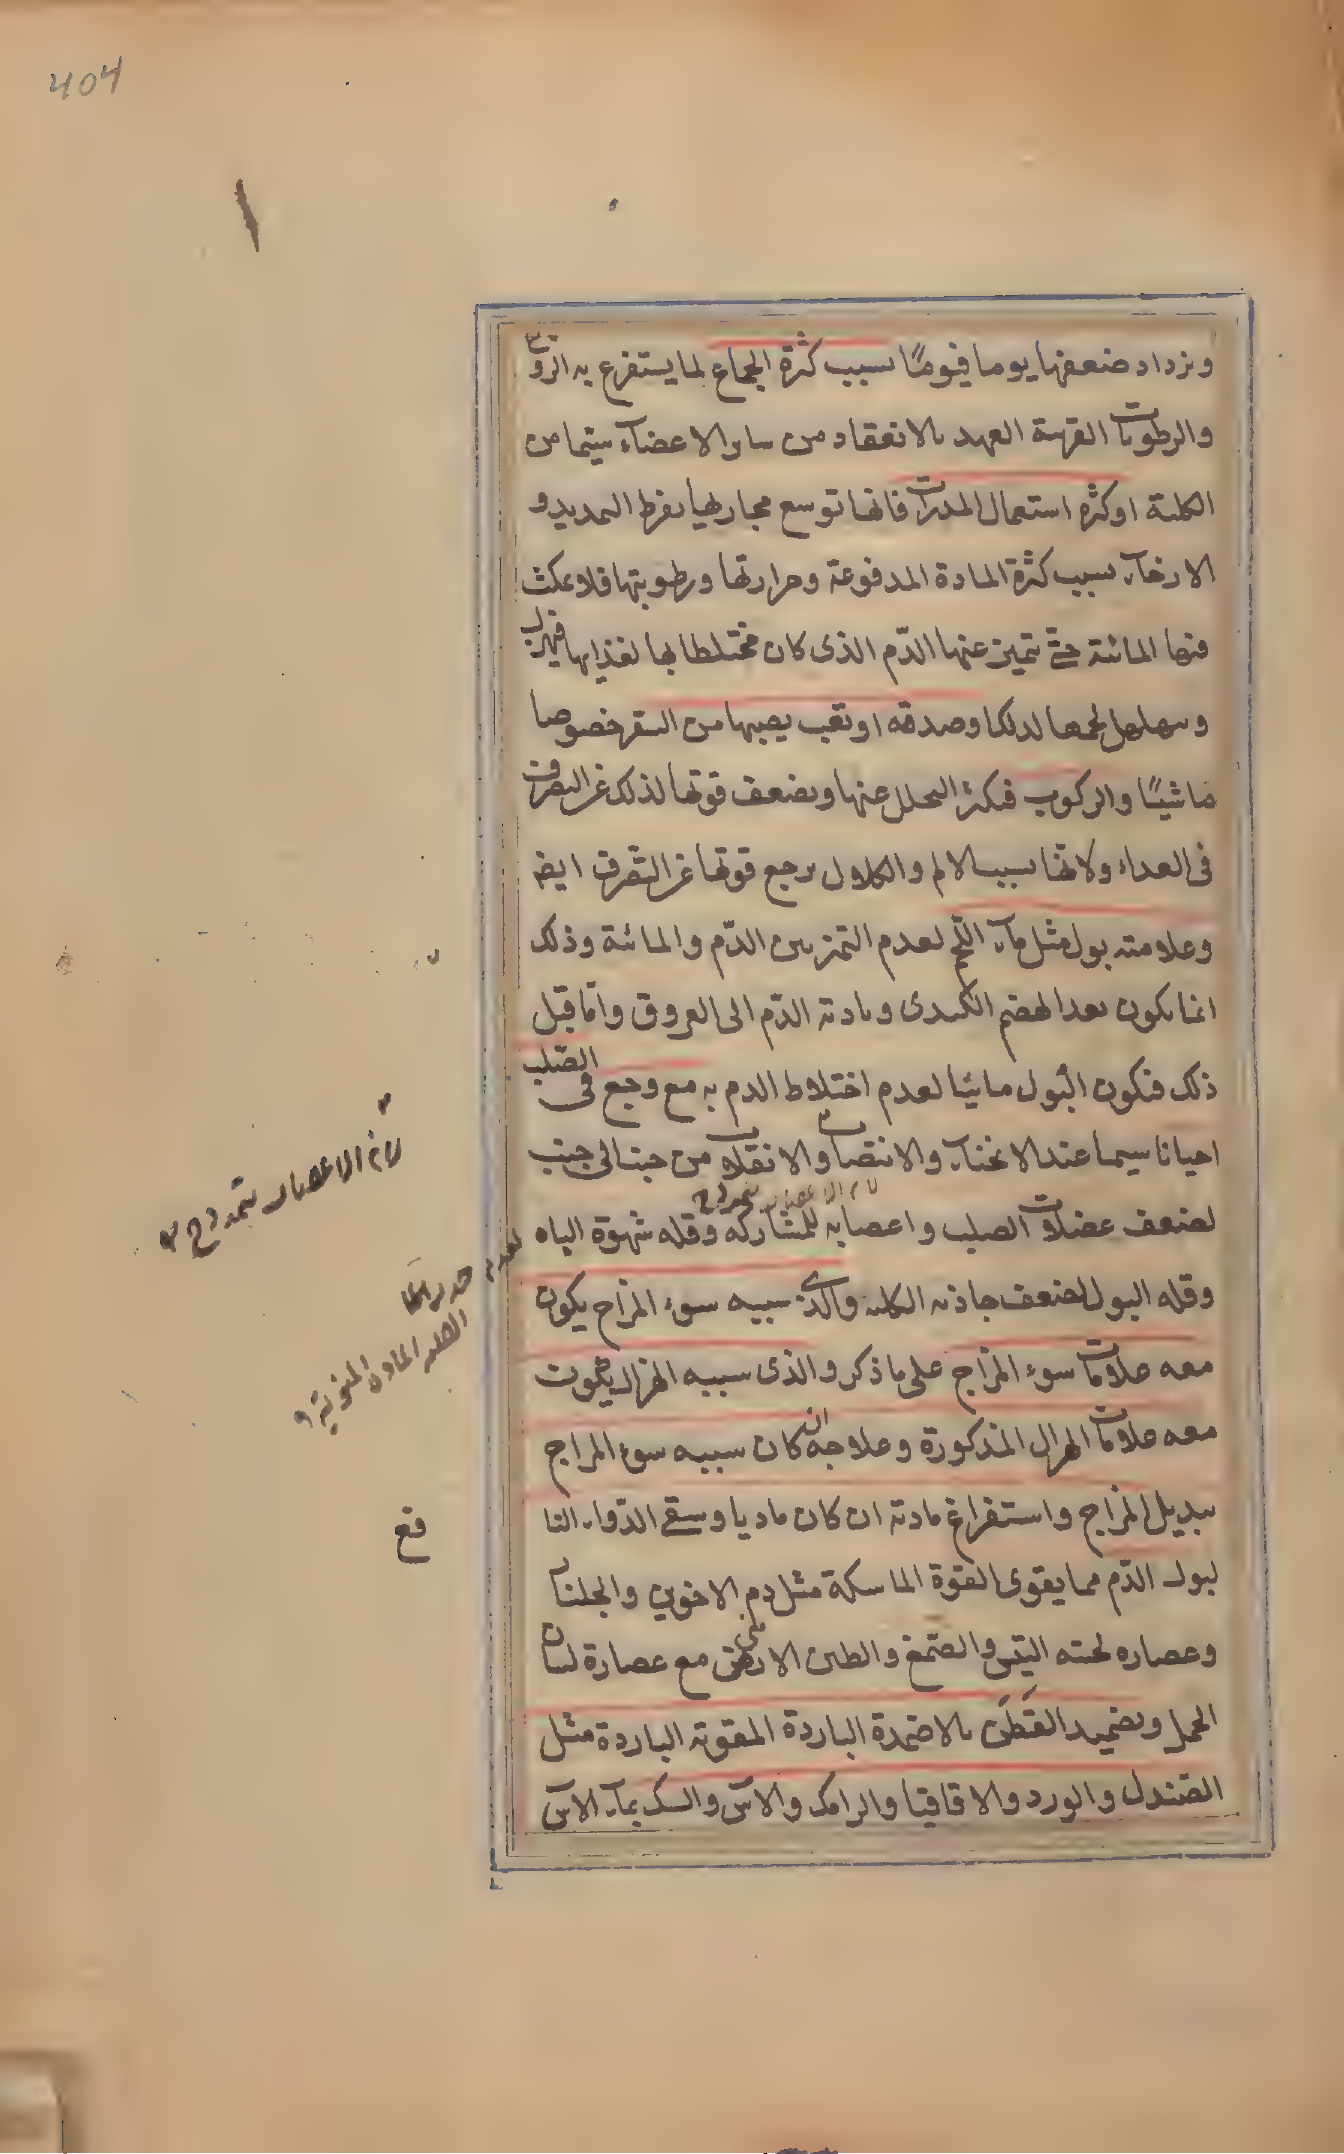 404
ويزداد ضعفها يوما فيوما بسبب كثرة الجماع لما يستفرغ به الروح
والرطوبات القريبة العهد بالانعقاد من ساير الاعضاء سيما من
الكلية او كثرة استعمال المدرات فانها توسع مجاريها بفرط التمديد و
الارخاء بسبب كثرة المادة المدفوعة وحرارتها ورطوبتها فلا يمكث
فيها المائية حتى يتميز عنها الدم الذى كان مختلطا بها لغذايها فيهزل
ويتهلهل لحمها لذلك او صدمة او تعب يصيبها من السفر خصوصا
ماشيا والركوب فيكثر التحلل عنها ويضعف قوتها لذلك عن التصرف
فى الغداء ولانها بسبب الالم والكلال يرجع قوتها عن التصرف ايضا
وعلامته بول مثل ماء اللحم لعدم التميز بين الدم والمائية وذلك
انما يكون بعد الهضم الكبدى وتادية الدم الى العروق واما قبل
ذلك فيكون البول مائيا لعدم اختلاط الدم به مع وجع فى الصلب
احيانا سيما عند الانحناء والانتصاب والانقلاب من جنب الى جنب
لضعف عضلات الصلب واعصابه للمشاركة وقلة شهوة الباه
وقلة البول لضعف جاذبة الكلية والذى سببه سوء المزاج يكون
معه علامات سوء المزاج على ما ذكر والذى سببه الهزال يكون
معه علامات الهزال المذكورة وعلاجه ان كان سببه سوء المزاج
تبديل المزاج واستفراغ مادته ان كان ماديا وسقى الدواء النا
لبول الدم مما يقوى القوة الماسكة مثل دم الاخوين والجلنار
وعصارة لحية التيس والصمغ والطين الارمنى مع عصارة لسان
الحمل وتضميد القطن بالاضمدة الباردة المقوية الباردة مثل
الصندل والورد والاقاقيا والرامك والاس والسك بماء الاس
لان الاعصاب تتمدد ح
المادة المنوية
فع